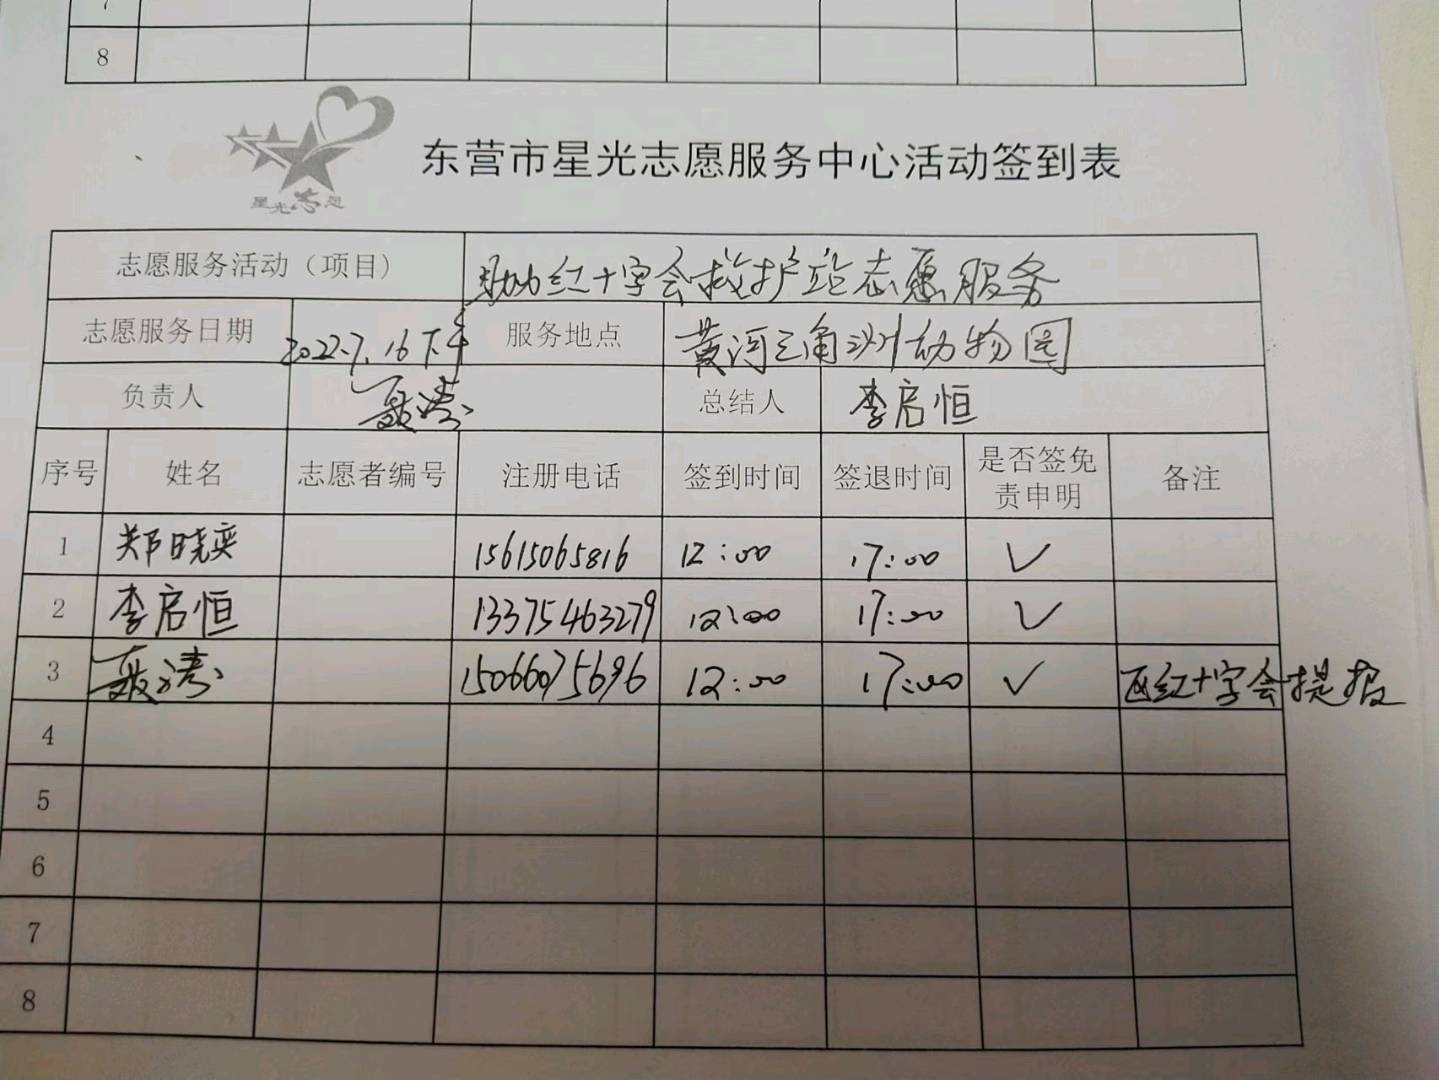 7
8
星光志愿
东营市星光志愿服务中心活动签到表
志愿服务活动（项目） 助红十字会救护站志愿服务
志愿服务日期 2022.7.16下午 服务地点 黄河三角洲动物园
负责人 总结人 李启恒
序号 姓名 志愿者编号 注册电话 签到时间 签退时间 是否签免责申明 备注
1 郑晓奕 15615065816 12:00 17:00 ✓
2 李启恒 13375463279 12:00 17:00 ✓
3 15066075696 12:00 17:00 ✓ 红十字会提报
4
5
6
7
8